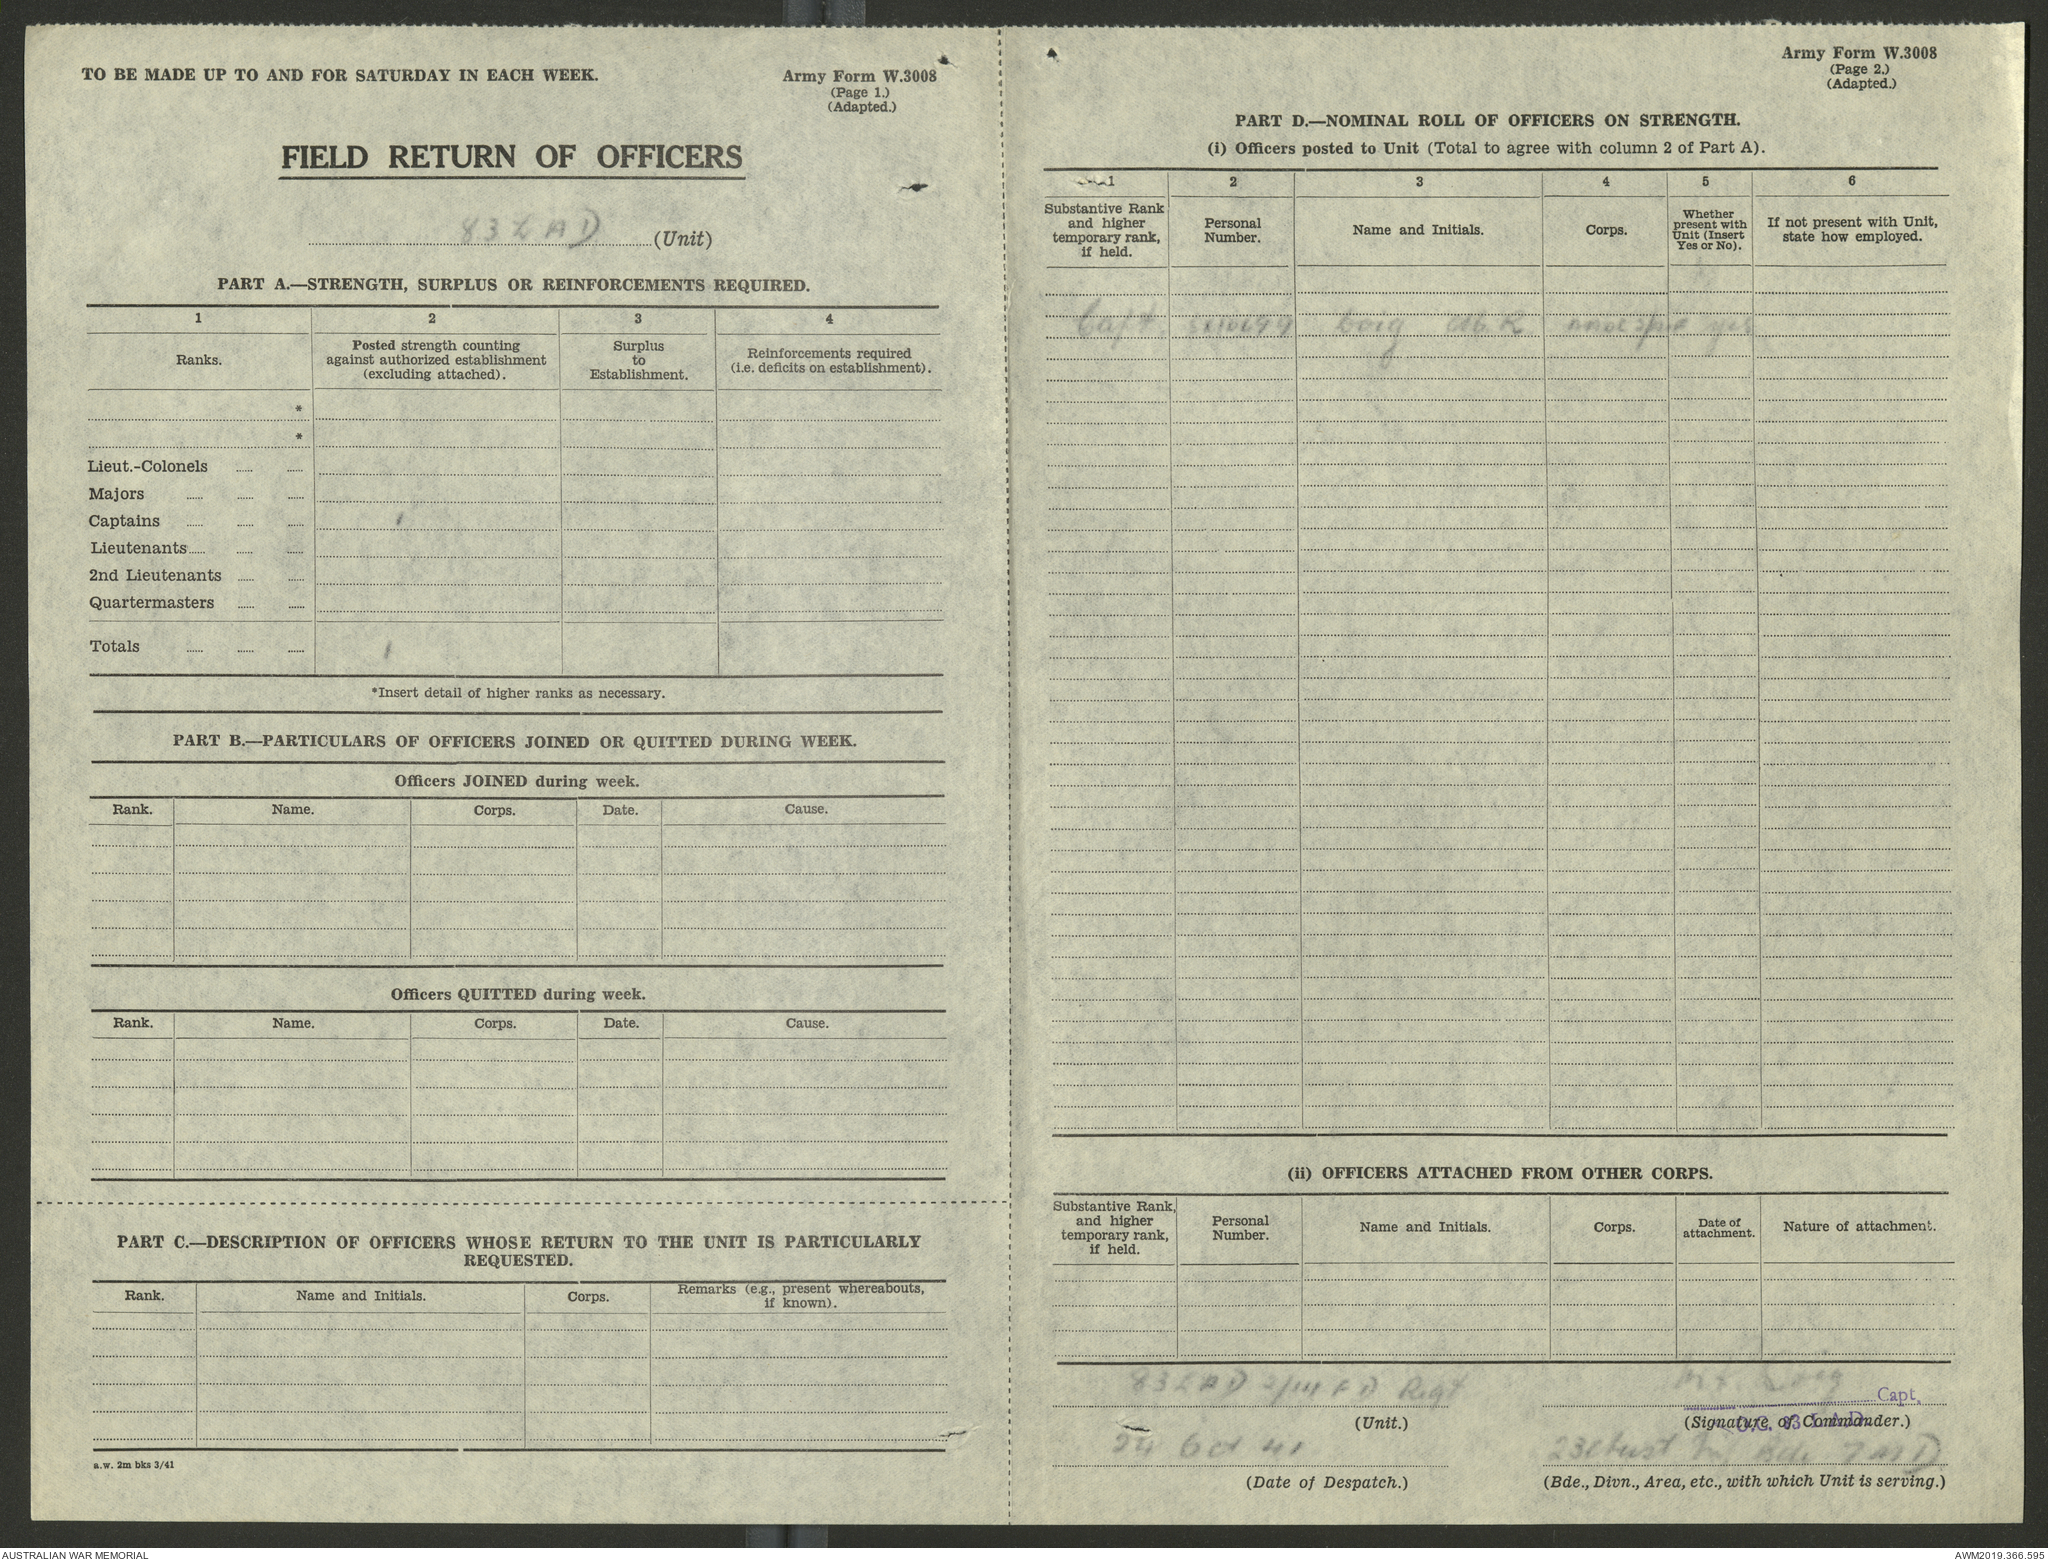 TO BE MADE UP TO AND FOR SATURDAY IN EACH WEEK.
Army Form W.3008
(Page 1.)
(Adapted.)
FIELD RETURN OF OFFICERS
83 LAD (Unit)
PART A.—STRENGTH, SURPLUS OR REINFORCEMENTS REQUIRED.
1 2 3 4
Ranks.
Posted strength counting
against authorized establishment
(excluding attached).
Surplus
to
Establishment.
Reinforcements required
(i.e. deficits on establishment).
*
*
Lieut.-Colonels
Majors
Captains 1
Lieutenants
2nd Lieutenants
Quartermasters
Totals 1
*Insert detail of higher ranks as necessary.
PART B.—PARTICULARS OF OFFICERS JOINED OR QUITTED DURING WEEK.
Officers JOINED during week.
Rank. Name. Corps. Date. Cause.
Officers QUITTED during week.
Rank. Name. Corps. Date. Cause.
PART C.—DESCRIPTION OF OFFICERS WHOSE RETURN TO THE UNIT IS PARTICULARLY
REQUESTED.
Rank. Name and Initials. Corps.
Remarks (e.g., present whereabouts,
if known).
a.w. 2m bks 3/41
Army Form W.3008
(Page 2.)
(Adapted.)
PART D.—NOMINAL ROLL OF OFFICERS ON STRENGTH.
(i) Officers posted to Unit (Total to agree with column 2 of Part A).
1 2 3 4 5 6
Substantive Rank
and higher
temporary rank,
if held.
Personal
Number.
Name and Initials.
Corps.
Whether
present with
Unit (Insert
Yes or No).
If not present with Unit,
state how employed.
Capt. yes
(ii) OFFICERS ATTACHED FROM OTHER CORPS.
Substantive Rank,
and higher
temporary rank,
if held.
Personal
Number.
Name and Initials.
Corps.
Date of
attachment.
Nature of attachment.
83 LAD 2/14 FD Regt
(Unit.)
Capt.
(Signature of Commander.)
O.C. 83 L.A.D.
24 Oct 41
(Date of Despatch.)
Bde 7 MD
(Bde., Divn., Area, etc., with which Unit is serving.)
AUSTRALIAN WAR MEMORIAL
AWM2019.366.595